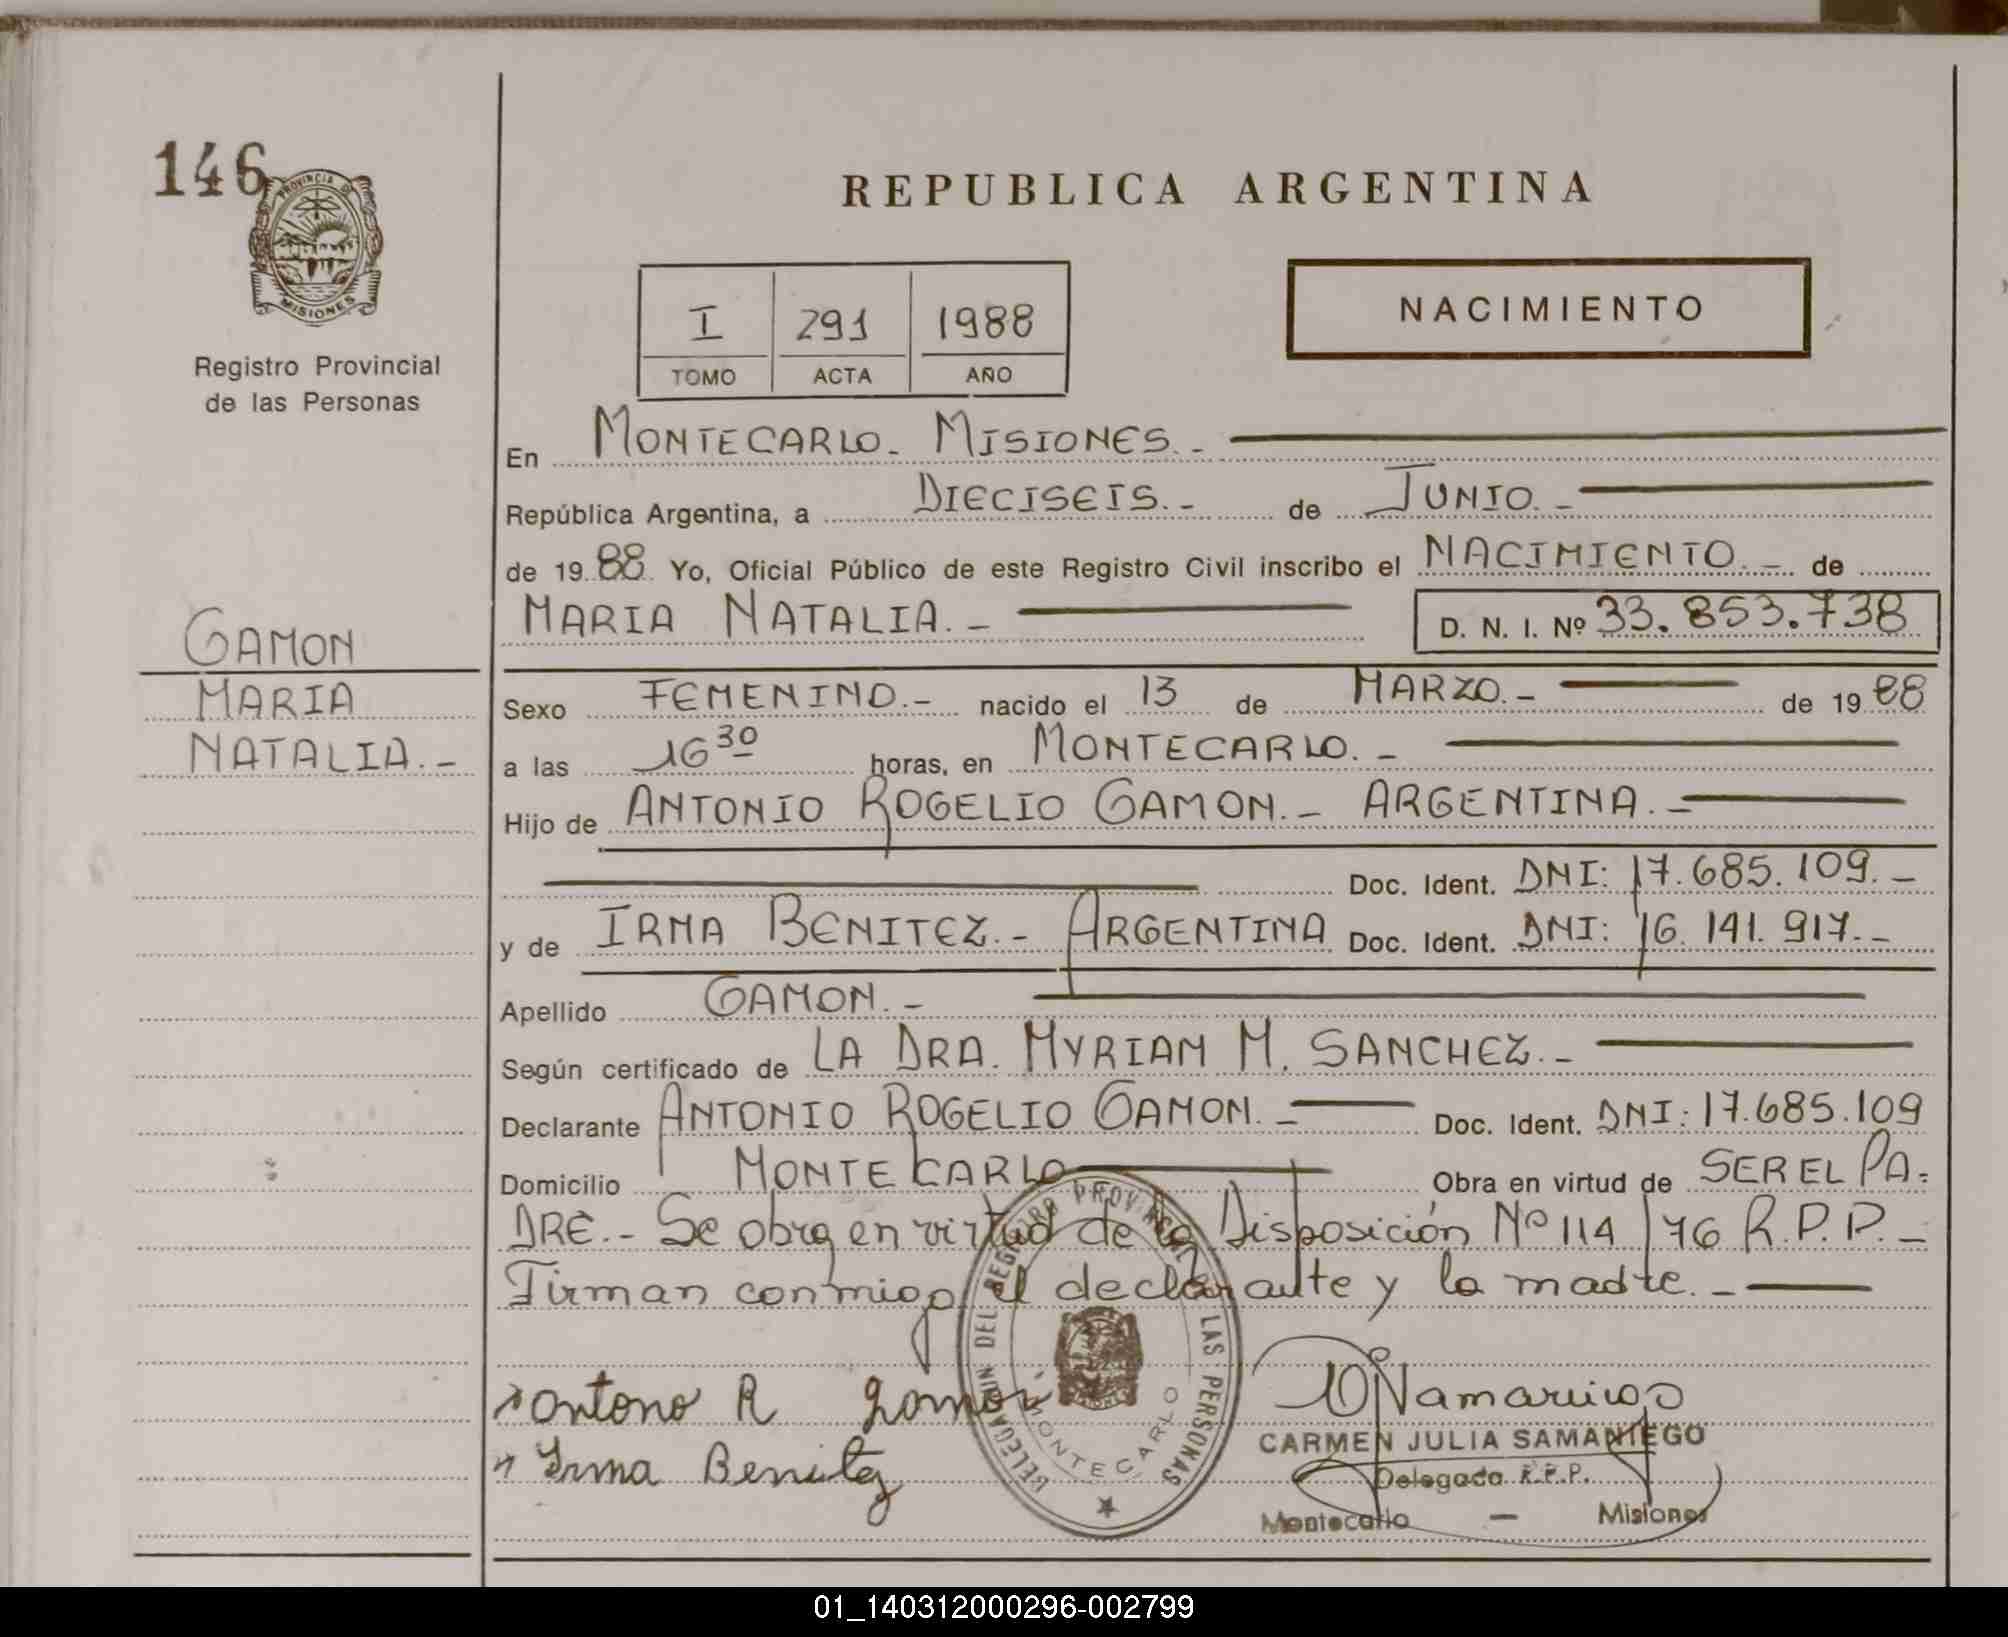 146
PROVINCIA D
MISIONES
Registro Provincial
de las Personas
REPUBLICA ARGENTINA
I 291 1988
TOMO ACTA AÑO
NACIMIENTO
En MONTECARLO. MISIONES.-
República Argentina, a DIECISEIS.- de JUNIO.-
de 19 88 Yo, Oficial Público de este Registro Civil inscribo el NACIMIENTO.- de
MARIA NATALIA.- D. N. I. Nº 33.853.738
GAMON
MARIA
NATALIA.-
Sexo FEMENINO.- nacido el 13 de MARZO.- de 19 88
a las 16 30 horas, en MONTECARLO.-
Hijo de ANTONIO ROGELIO GAMON.- ARGENTINA.-
Doc. Ident. DNI: 17.685.109.-
y de IRMA BENITEZ.- ARGENTINA Doc. Ident. DNI: 16.141.917.-
Apellido GAMON.-
Según certificado de LA DRA. MYRIAM M. SANCHEZ.-
Declarante ANTONIO ROGELIO GAMON.- Doc. Ident. DNI: 17.685.109
Domicilio MONTECARLO Obra en virtud de SER EL PA=
DRE.- Se obra en virtud de la Disposición Nº 114/76 R.P.P.-
Firman conmigo el declarante y la madre.-
Antono R Gamon
Irma Benitez
DELEGACION DEL REGISTRO PROVINCIAL DE LAS PERSONAS
MONTECARLO
CARMEN JULIA SAMANIEGO
Delegada R.P.P.
Montecarlo - Misiones
01_140312000296-002799